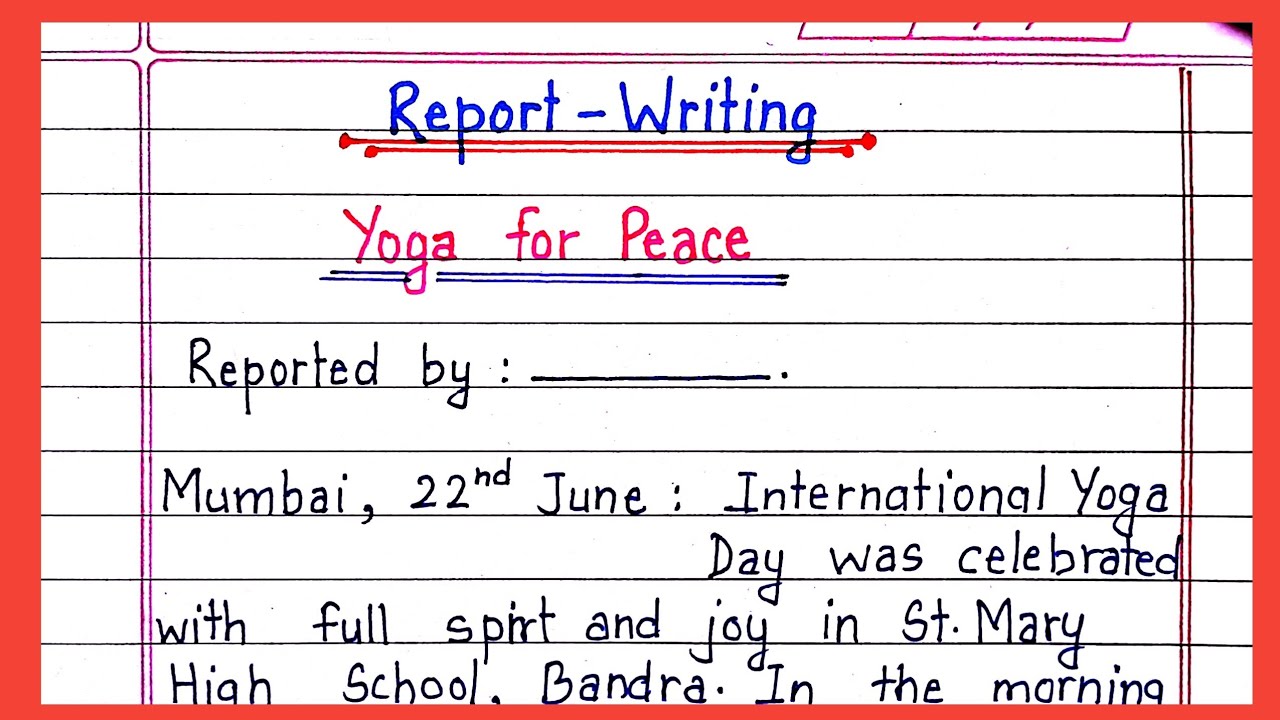 Report - Writing
Yoga for Peace
Reported by : ________.
Mumbai, 22nd June : International Yoga
Day was celebrated
with full spirt and joy in St. Mary
High School, Bandra. In the morning